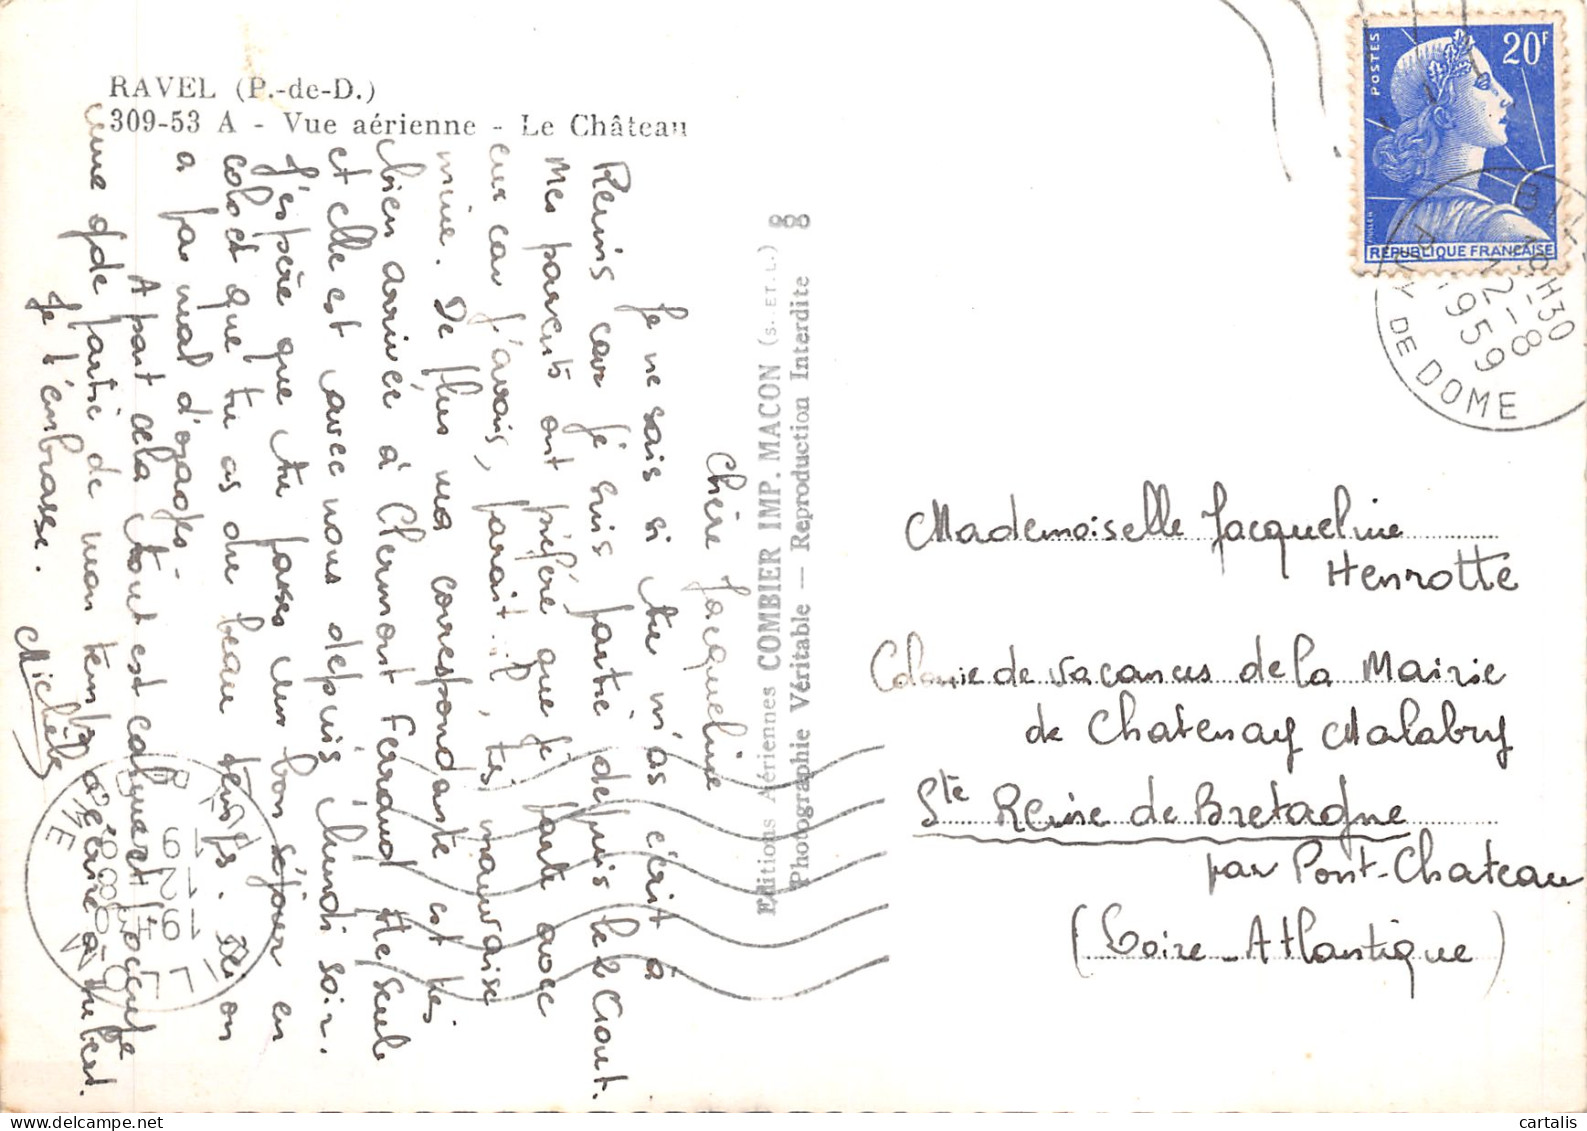 RAVEL (P.-de-D.)
309-53 A - Vue aérienne - Le Château
Chère Jacqueline
Je ne sais si tu m'as écrit à
Reims car je suis partie depuis le 2 Août.
Mes parents ont préféré que je parte avec
eux car j'avais, parait-il, très mauvaise
mine. De plus ma correspondante est très
bien arrivée à Clermont Ferrand elle seule
et elle est avec nous depuis lundi soir.
J'espère que tu passes un bon séjour en
colo et que tu as du beau temps. Ici on
a pas mal d'orages.
A part cela tout est calme et j'occupe
une gde partie de mon temps à écrire à Hubert.
Je t'embrasse.
Michèle
Editions Aériennes COMBIER IMP. MACON (S. ET. L.)
Photographie Véritable — Reproduction Interdite
POSTES
20F
RÉPUBLIQUE FRANÇAISE
18H30
12-8
1959
PUY DE DOME
Mademoiselle Jacqueline
Henrotte
Colonie de vacances de la Mairie
de Chatenay Malabry
Ste Reine de Bretagne
par Pont-Chateau
(Loire-Atlantique)
cartalis